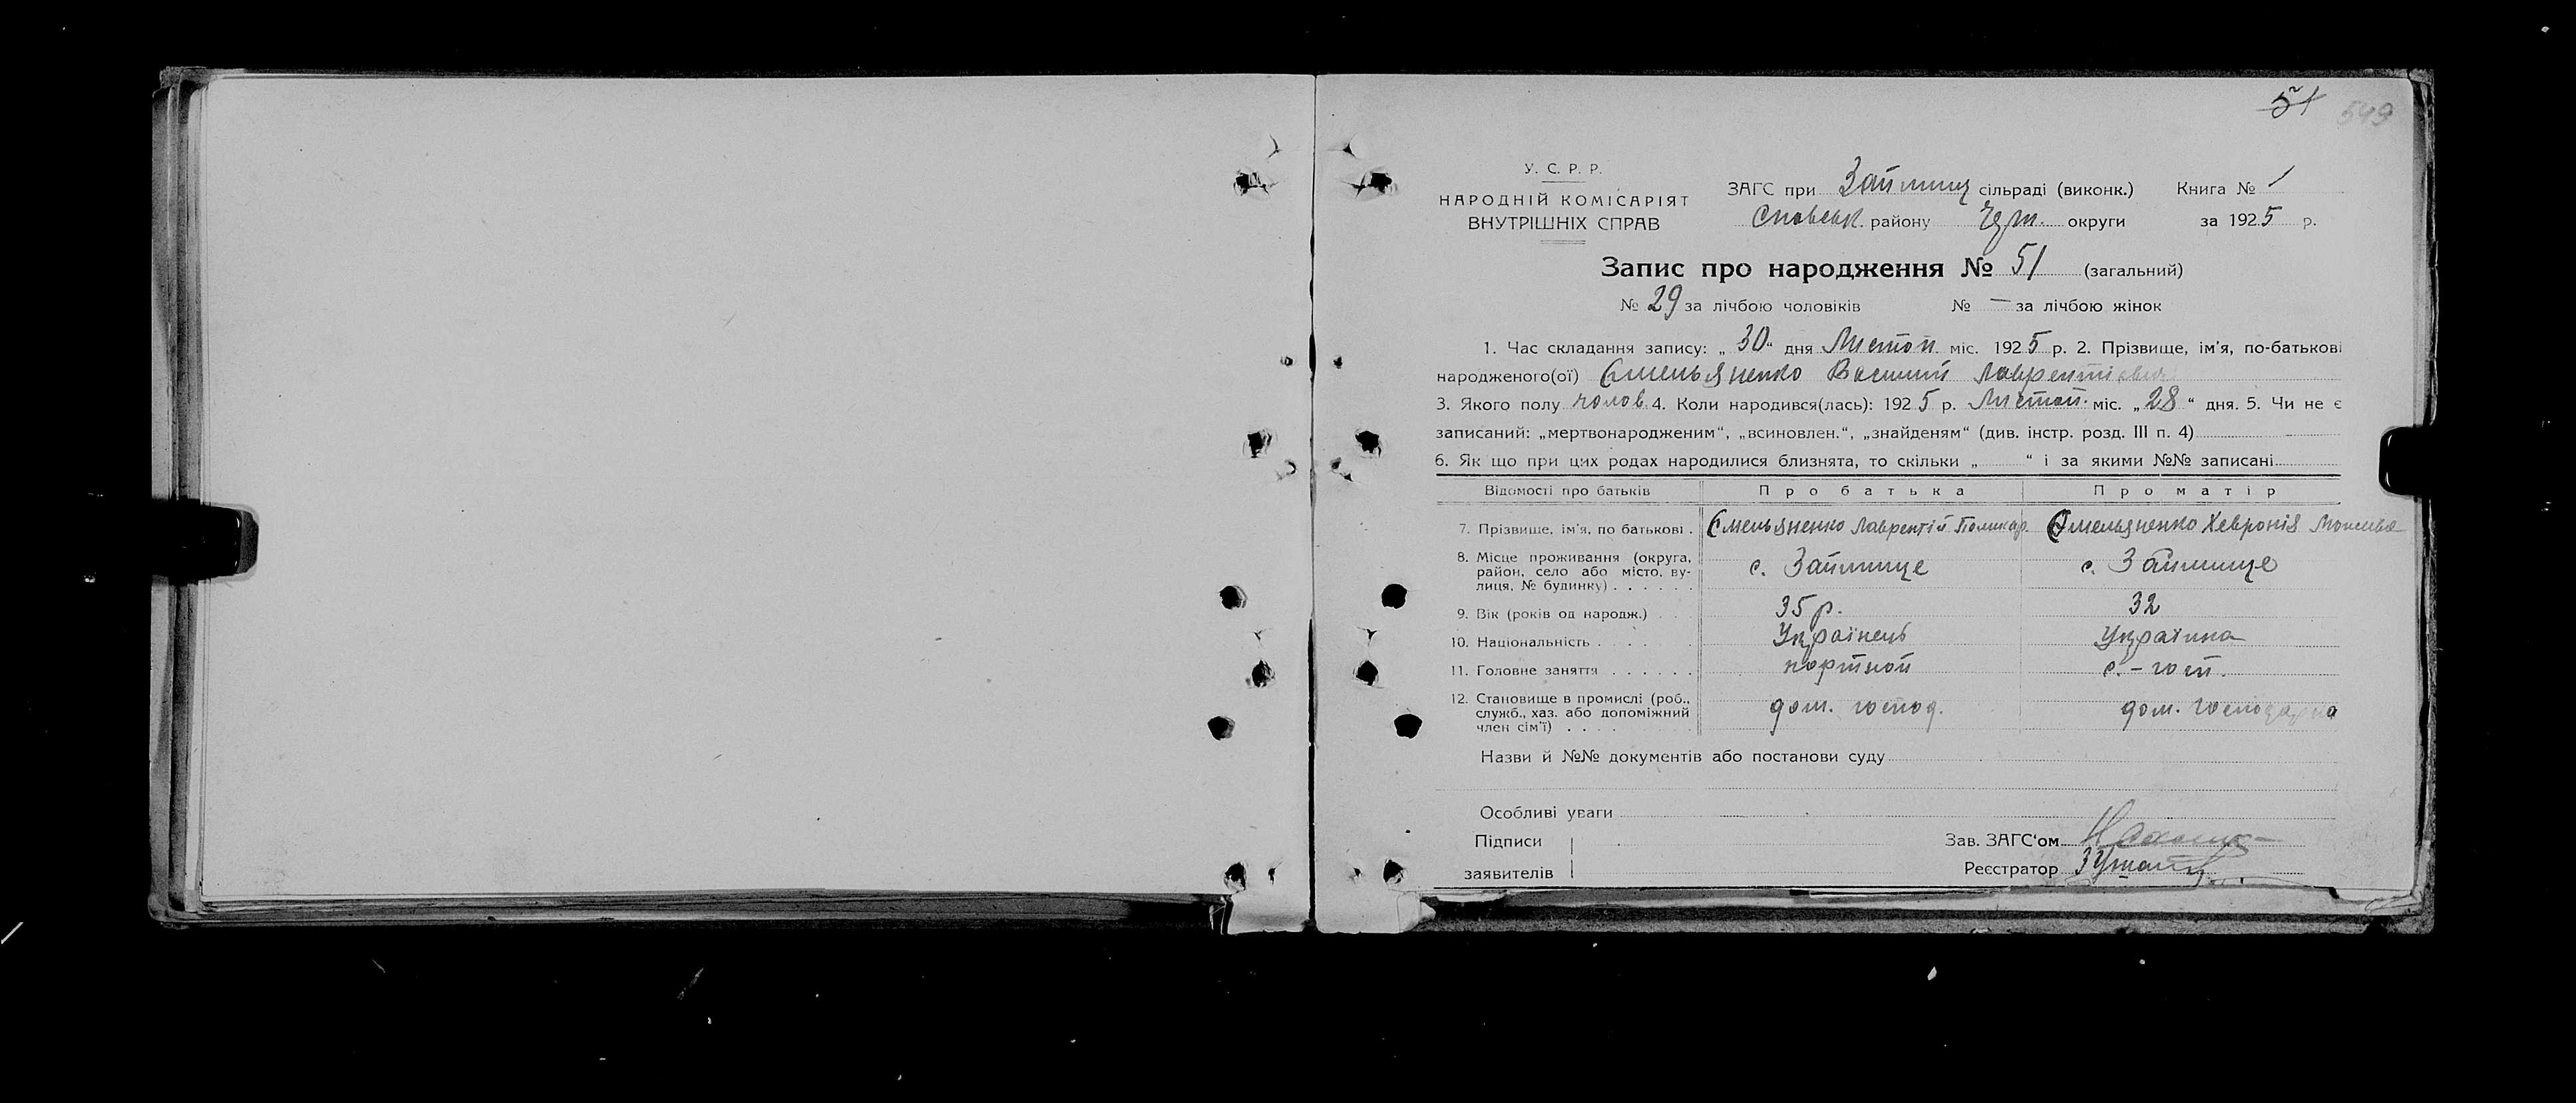 51 549
У. С. Р. Р.
НАРОДНІЙ КОМІСАРІЯТ
ВНУТРІШНІХ СПРАВ
ЗАГС при Займищ сільраді (виконк.) Книга № 1
Сновськ. району Черн. округи за 1925 р.
Запис про народження № 51 (загальний)
№ 29 за лічбою чоловіків № — за лічбою жінок
1. Час складання запису: „ 30 “ дня Листоп. міс. 1925 р. 2. Прізвище, ім'я, по-батькові
народженого(ої) Емельяненко Василий Лаврентієвич
3. Якого полу чолов. 4. Коли народився(лась): 1925 р. Листоп. міс. „28“ дня. 5. Чи не є
записаний: „мертвонародженим“, „всиновлен.“, „знайденям“ (див. інстр. розд. III п. 4)
6. Як що при цих родах народилися близнята, то скільки „ “ і за якими №№ записані
Відомості про батьків Про батька Про матір
7. Прізвище, ім'я, по батькові . Емельяненко Лаврентій Поликар. Емельяненко Хевронія
8. Місце проживання (округа,
район, село або місто, ву-
лиця, № будинку) . . . . . . с. Займище с. Займище
9. Вік (років од народж.) . . 35 р. 32
10. Національність . . . . . . Українець Українка
11. Головне заняття . . . . . . портной с.-госп.
12. Становище в промислі (роб.,
служб., хаз. або допоміжний
член сім'ї) . . . . дом. господ. дом. господарка
Назви й №№ документів або постанови суду
Особливі уваги
Підписи Зав. ЗАГС'ом
заявителів Реєстратор